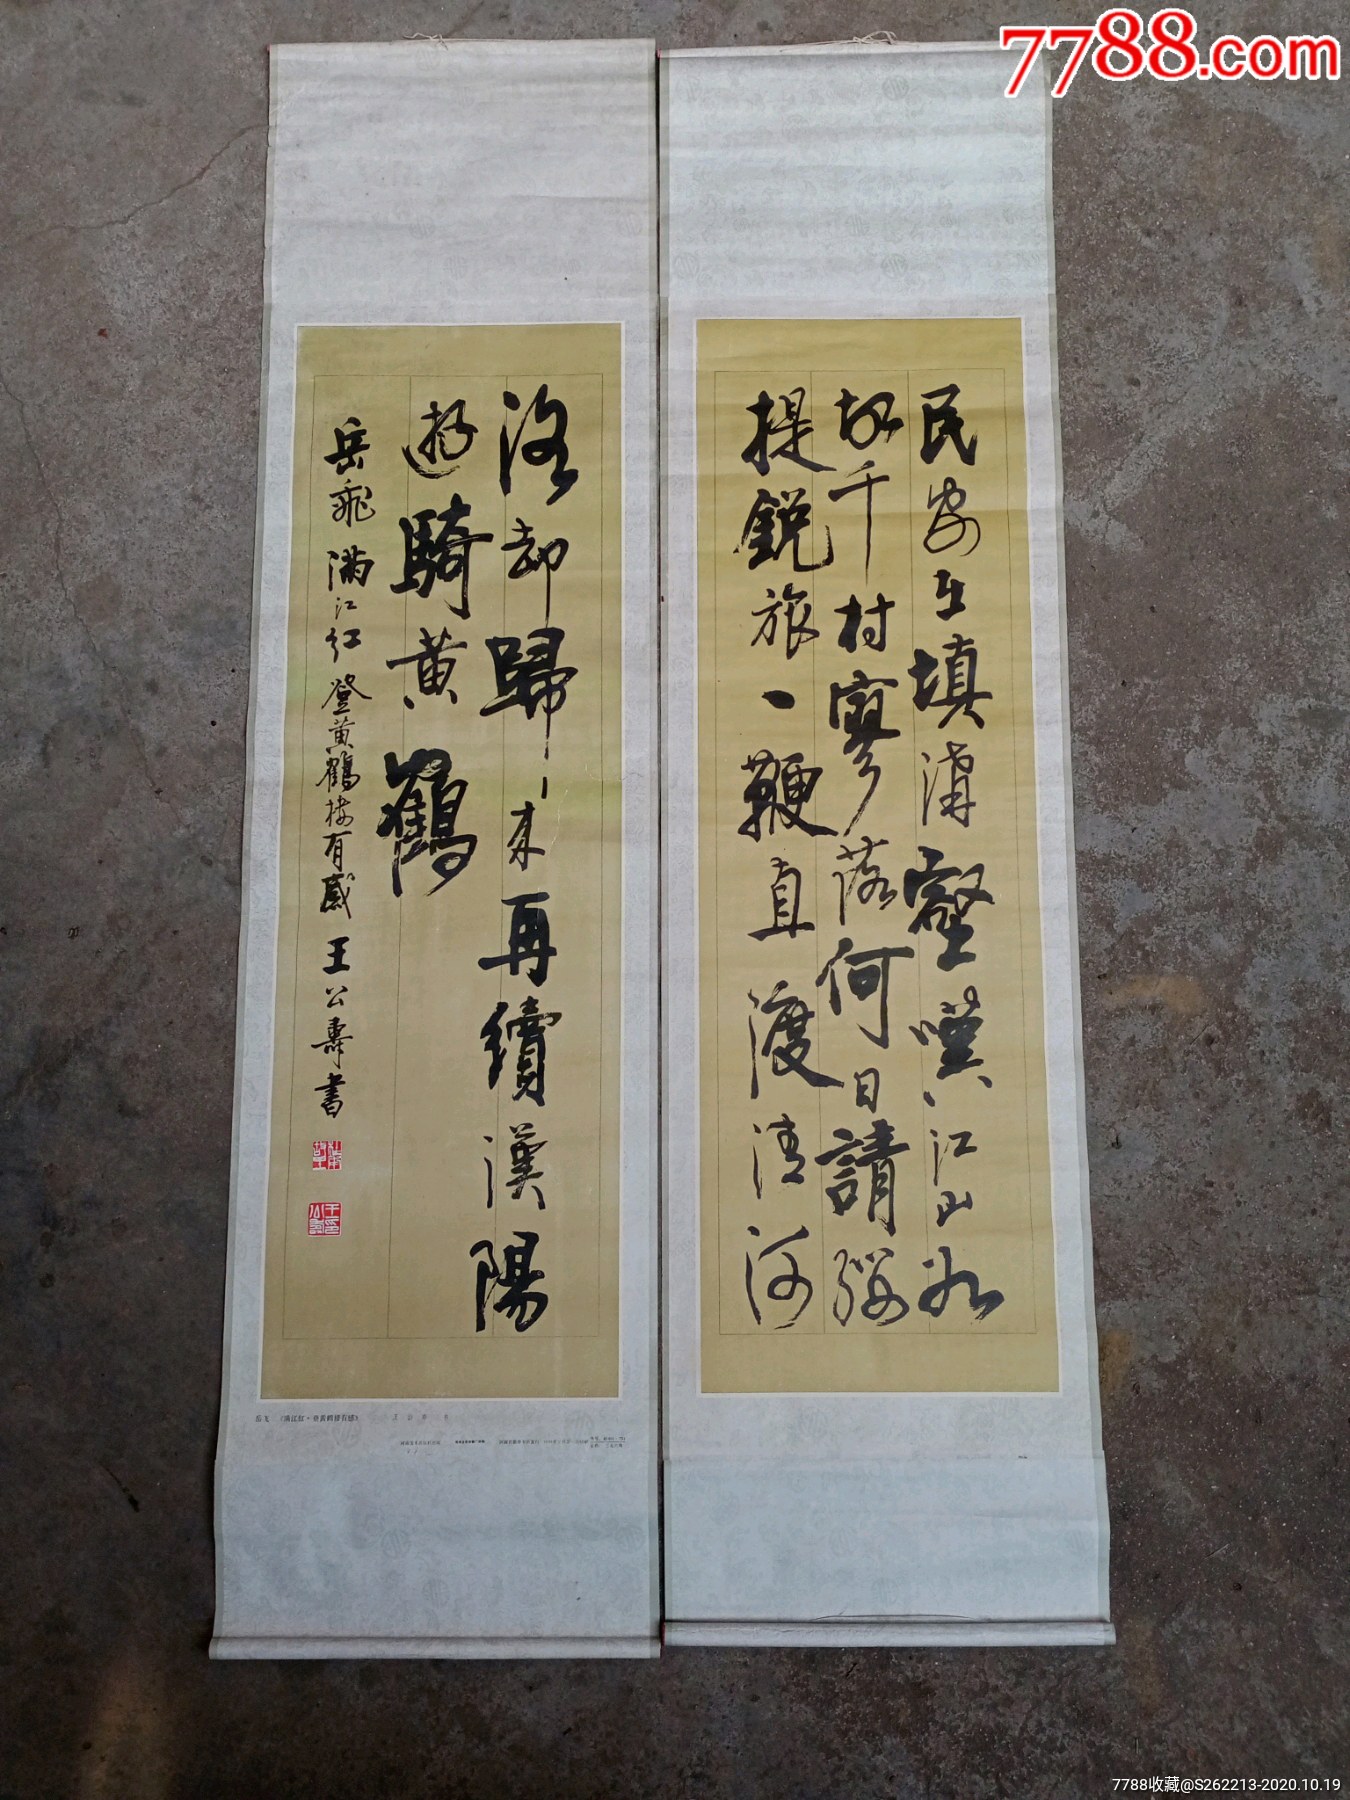 7788.com
民安在填溝壑嘆江山如
故千村寥落何日請纓
提銳旅一鞭直渡清河
洛却歸來再續漢陽
遊騎黄鶴
岳飛 满江红 登黄鶴楼有感 王公壽書
岳飞 《满江红·登黄鹤楼有感》
7788收藏@S262213-2020.10.19